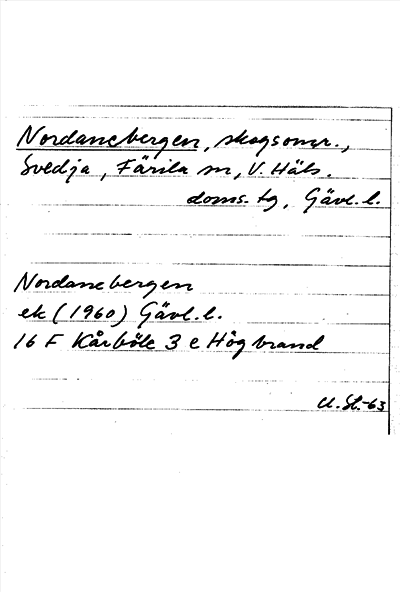 Nordanebergen, skogsomr.,
Svedja, Färila sn, V. Häls.
doms. tg, Gävl. l.
Nordanebergen
ek (1960) Gävl. l.
16 F Kårböle 3 e Högbrand
U. St.-63